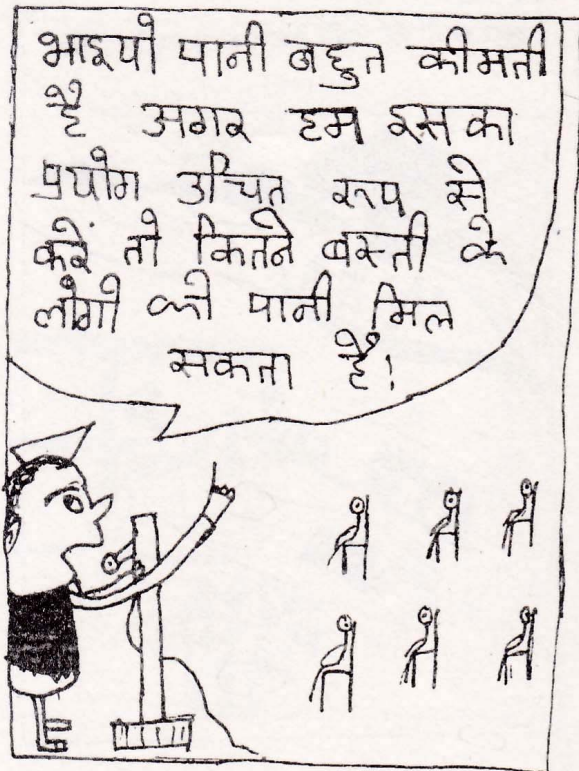 भाइयो पानी बहुत कीमती
है अगर हम इसका
प्रयोग उचित रूप से
करें तो कितने बस्ती के
लोगो को पानी मिल
सकता है!